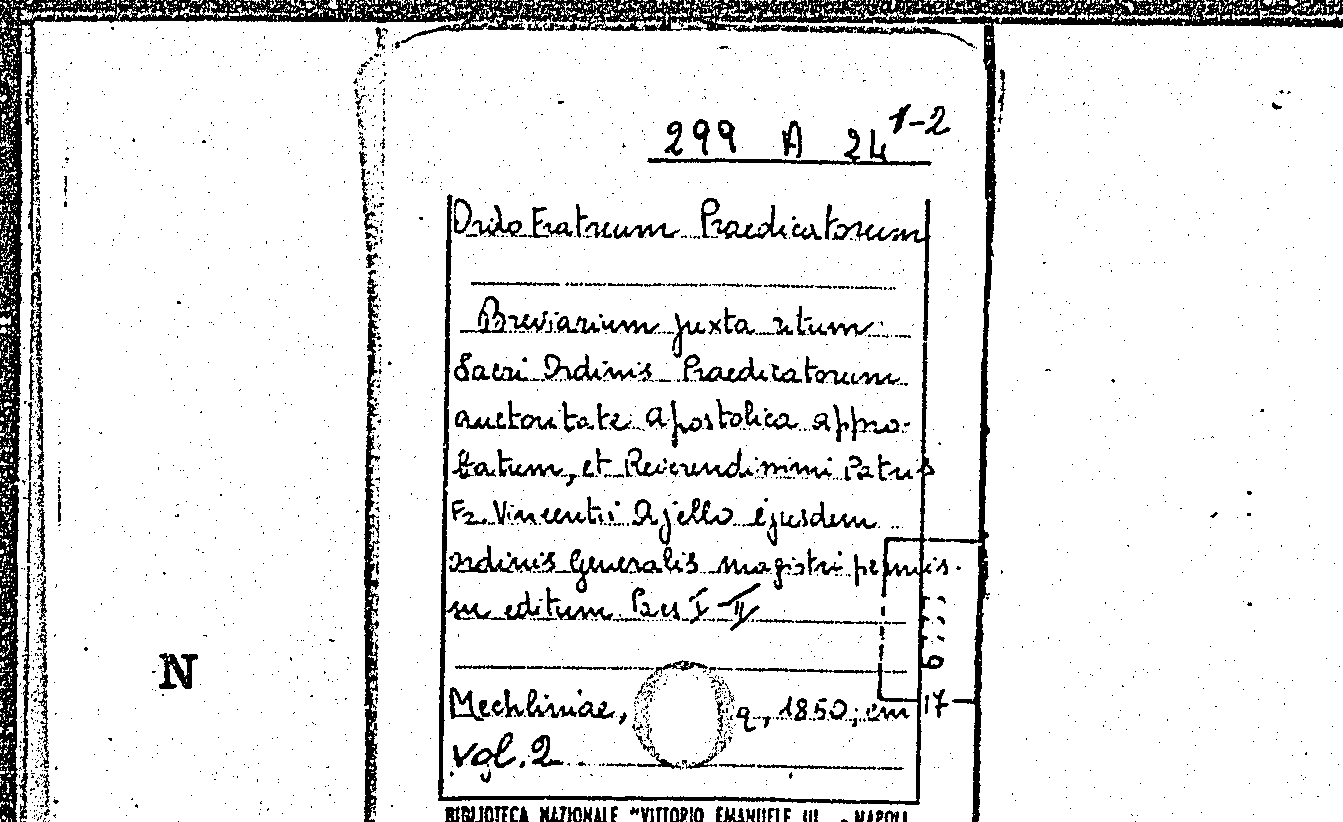 299 A 24 1-2
Ordo Fratrum Praedicatorum
Breviarium juxta ritum
Sacri Ordinis Praedicatorum
auctoritate apostolica appro-
batum, et Reverendissimi Patris
Fr. Vincentii Ajello ejusdem
ordinis Generalis magistri permis-
su editum Pars I-II
N
Mechliniae, q, 1850; cm 17
vol. 2
BIBLIOTECA NAZIONALE "VITTORIO EMANUELE III - NAPOLI